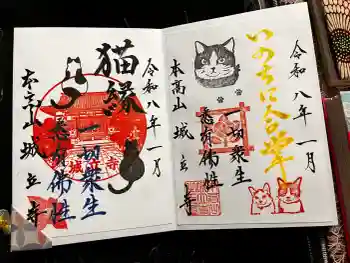 いのちに合掌
令和八年一月
一切衆生
悉有佛性
本高山
城立寺
令和八年一月
猫縁
一切衆生
悉有佛性
本高山城立寺